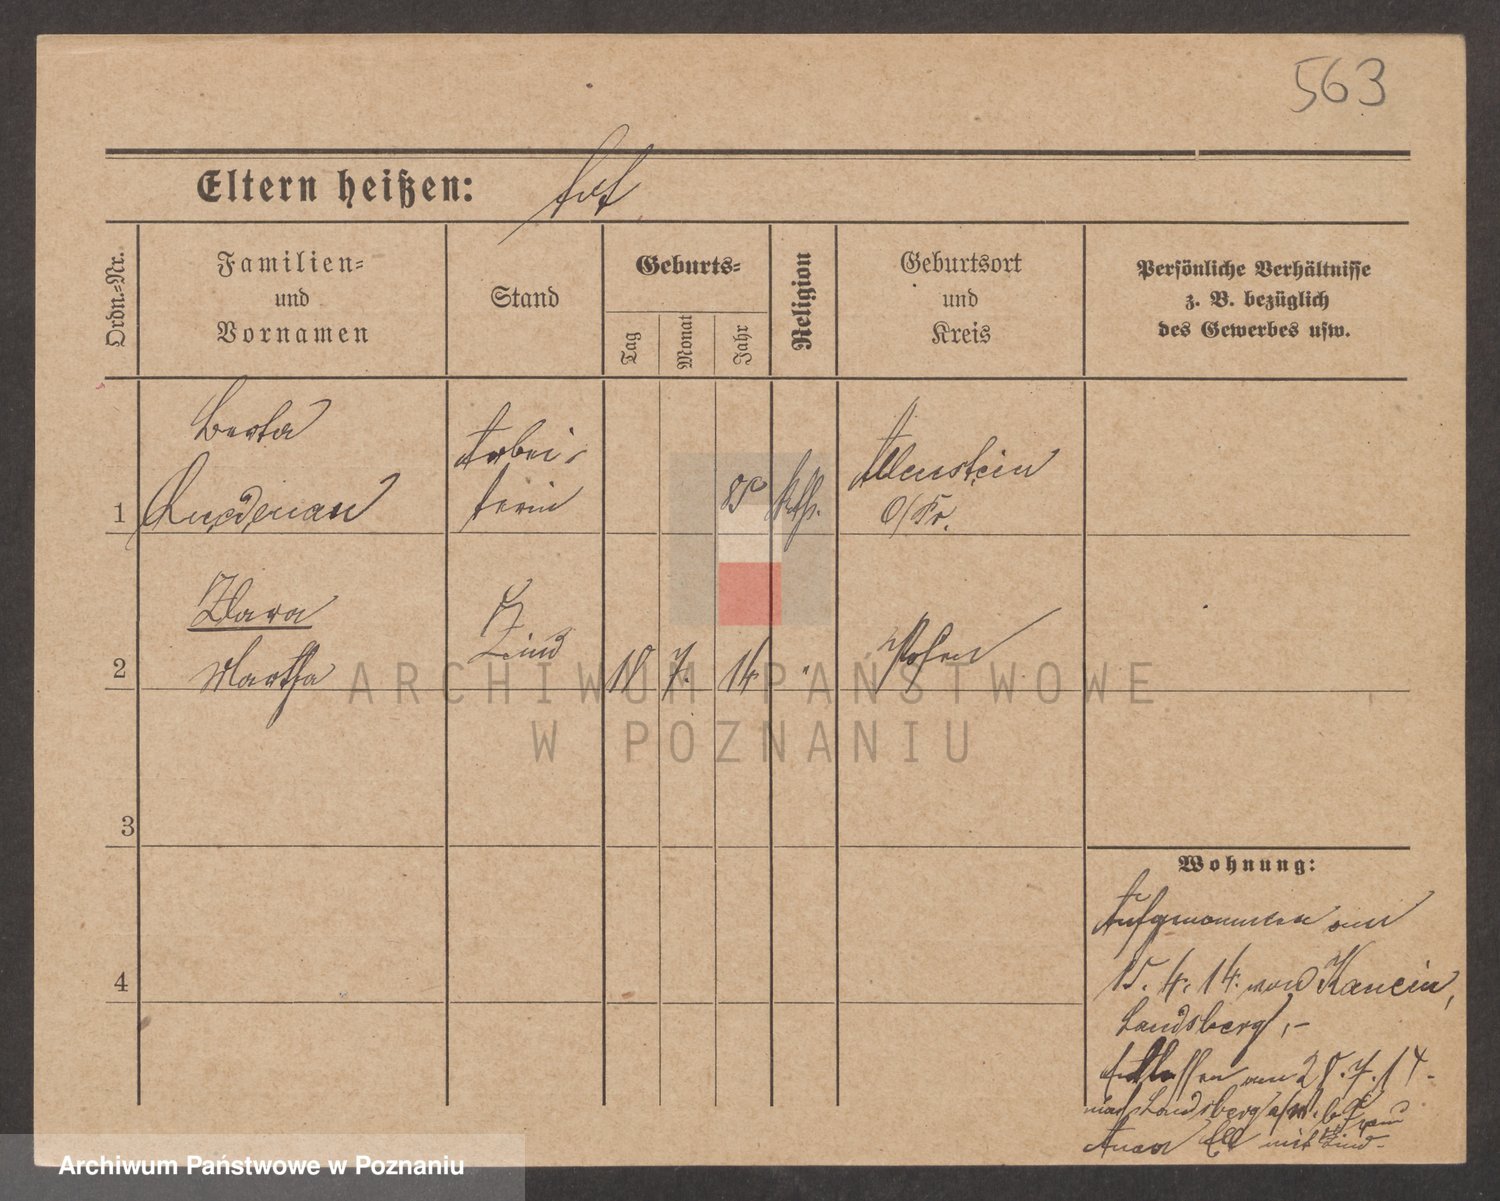 563
Eltern heißen: tot
Ordn.-Nr.
Familien-
und
Vornamen
Stand
Geburts-
Tag
Monat
Jahr
Religion
Geburtsort
und
Kreis
Persönliche Verhältnisse
z. B. bezüglich
des Gewerbes usw.
Berta
Arbei-
terin
Kath.
Allenstein
O/Pr.
1
Klara
Martha
Kind
18 7. 14
"
Posen
2
3
4
Wohnung:
Aufgenommen am
15. 4. 14. von
Landsberg, -
Entlassen am 28.7.14.
nach Landsberg a/W. b.
mit Kind.
ARCHIWUM PAŃSTWOWE
W POZNANIU
Archiwum Państwowe w Poznaniu